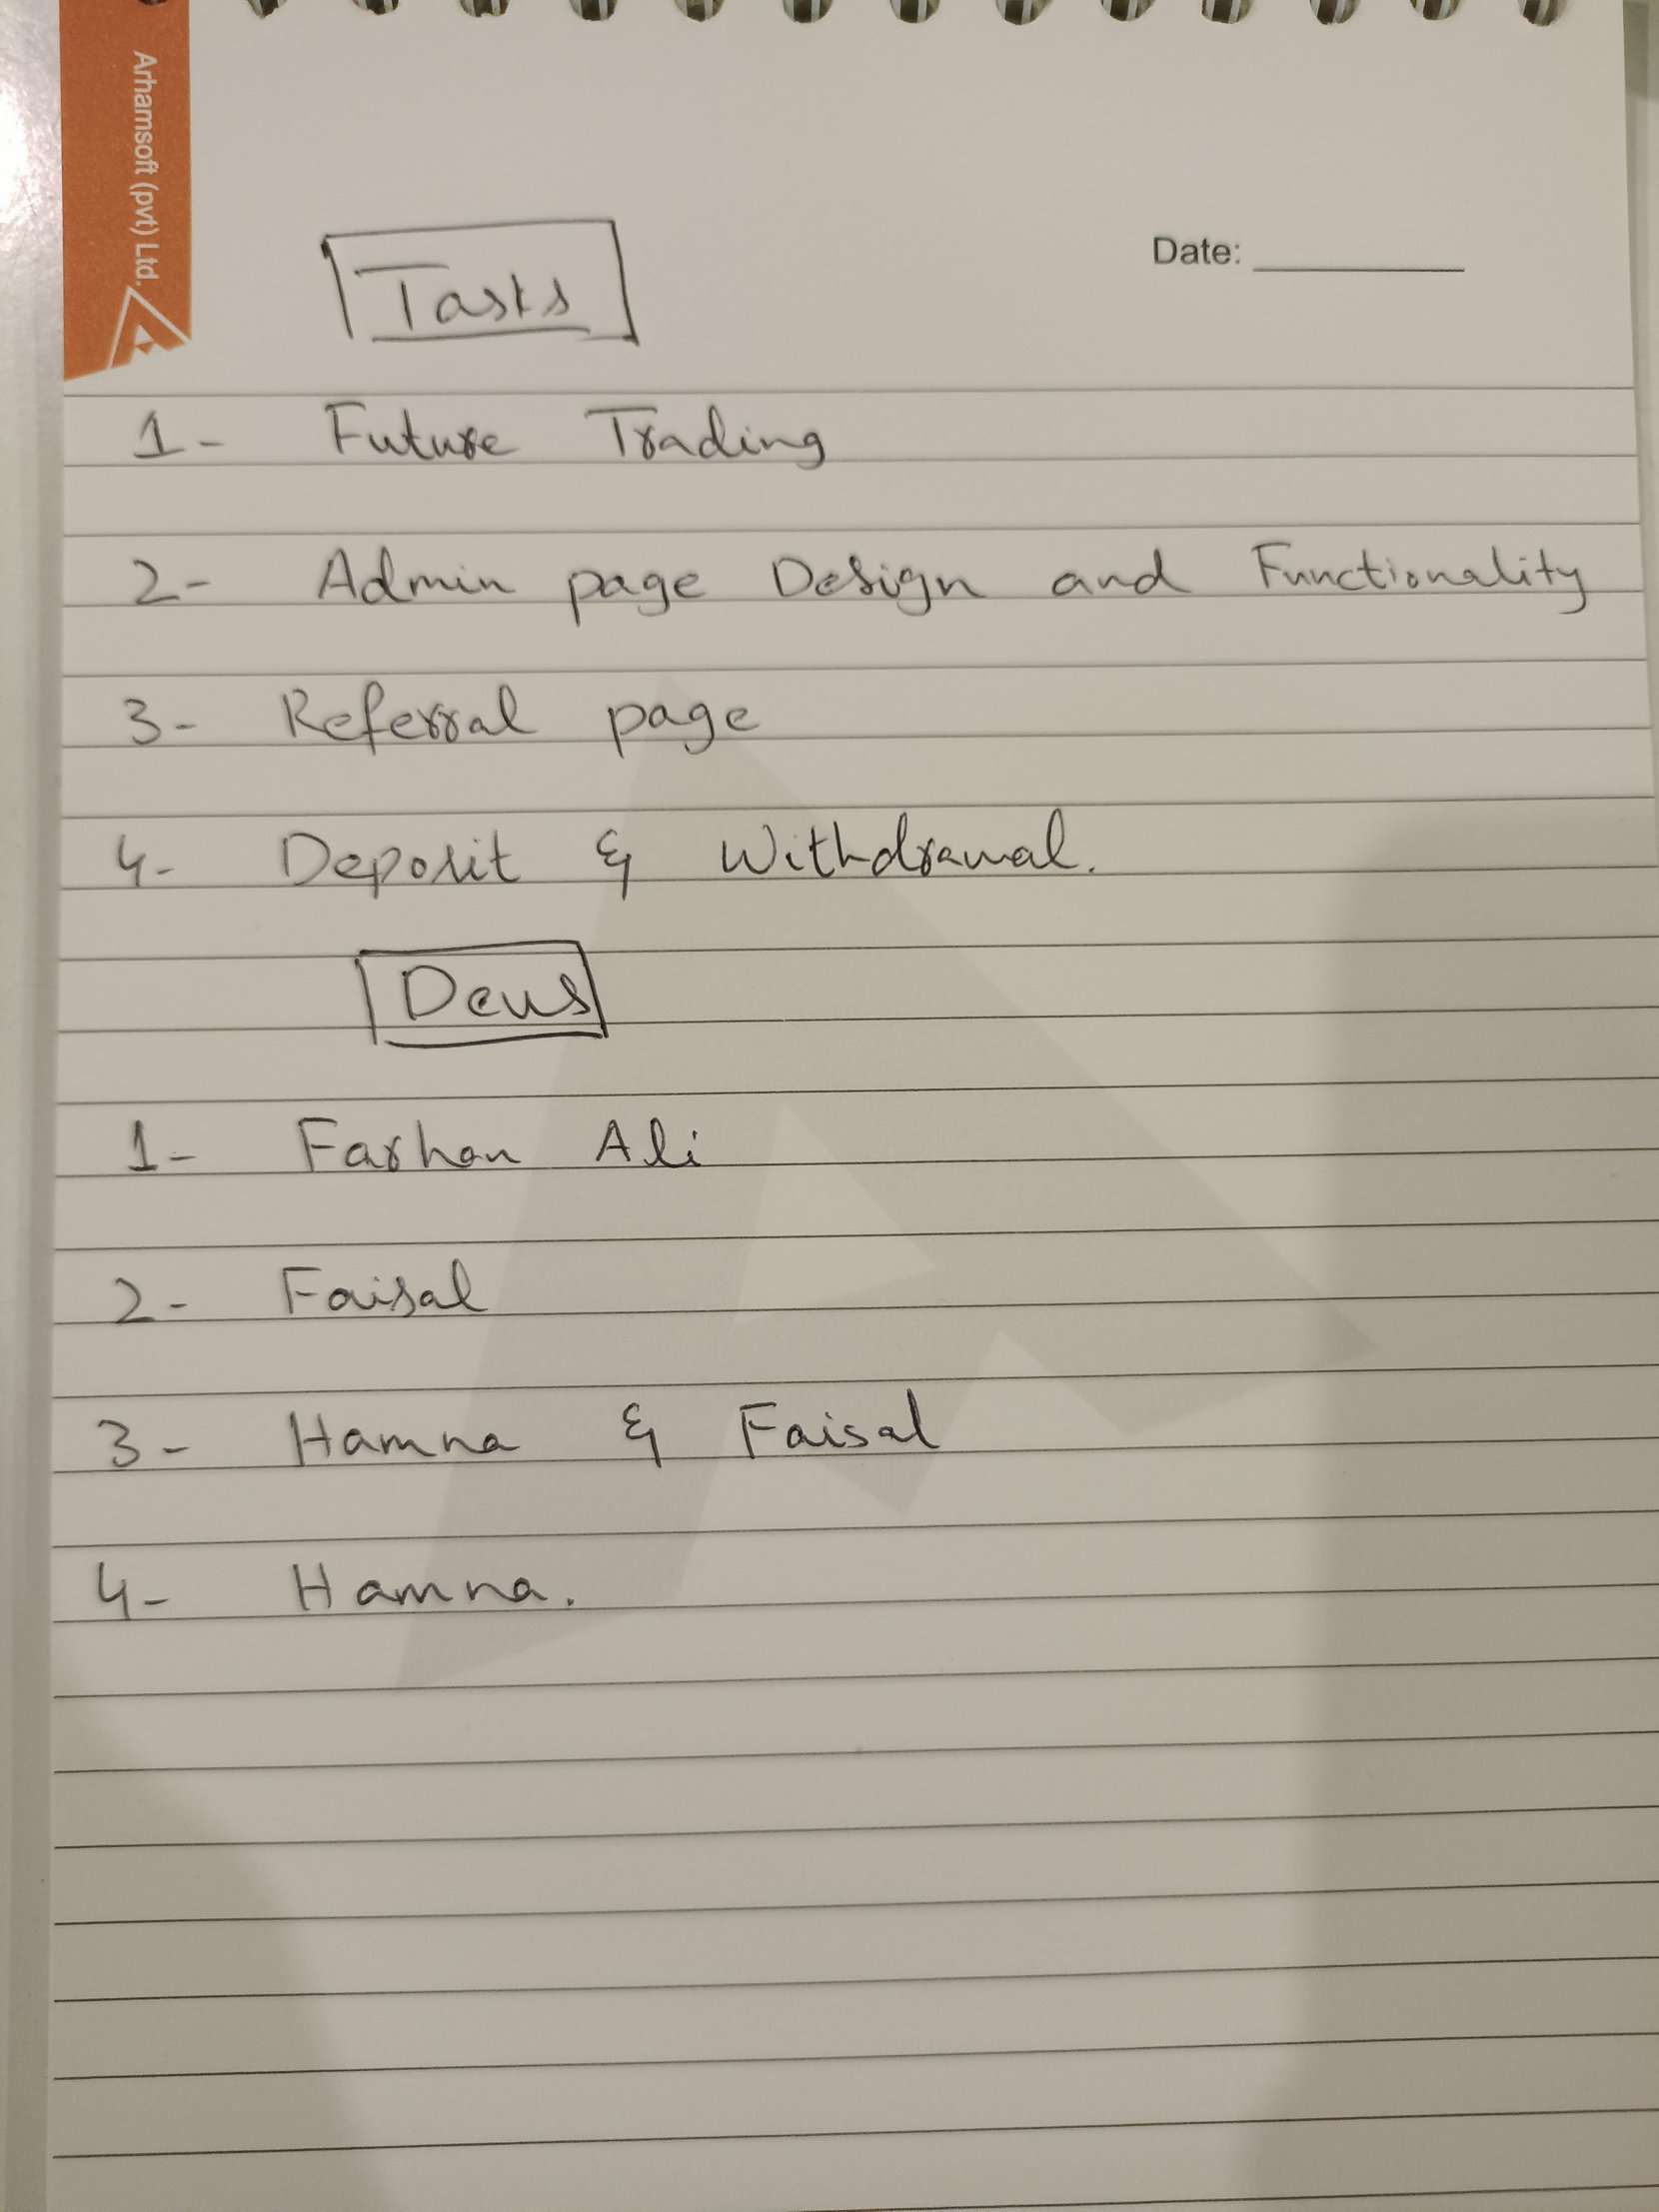 Arhamsoft (pvt) Ltd.
Date:
Tasks
1- Future Trading
2- Admin page Design and Functionality
3- Referral page
4- Deposit & Withdrawal.
Devs
1- Farhan Ali
2- Faisal
3- Hamna & Faisal
4- Hamna.